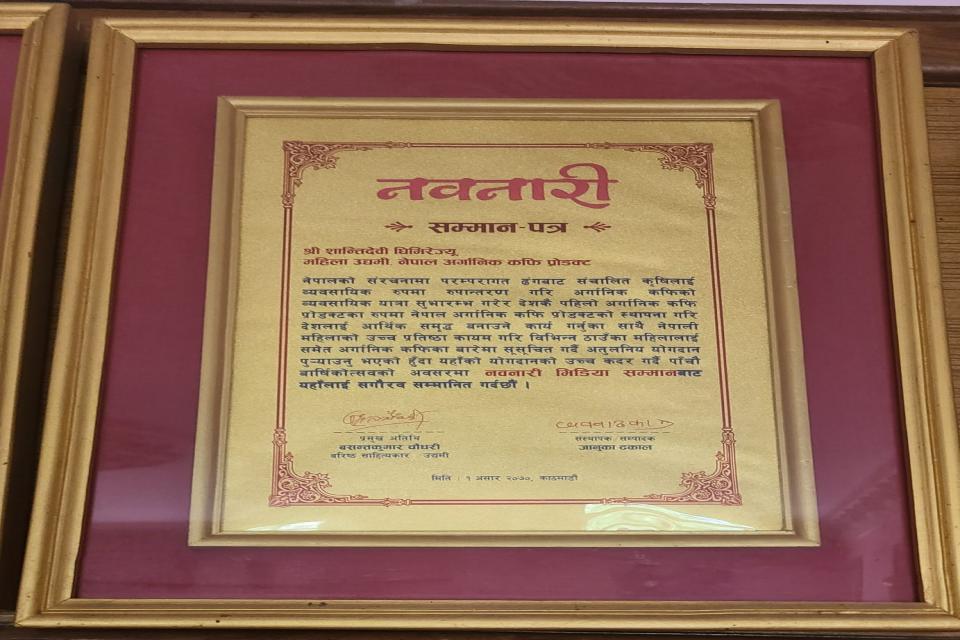 नवनारी
सम्मान-पत्र
श्री शान्तिदेवी घिमिरेज्यू
महिला उद्यमी, नेपाल अर्गानिक कफि प्रोडक्ट
नेपालको संरचनामा परम्परागत ढंगबाट संचालित कृषिलाई
व्यवसायिक रुपमा रुपान्तरण गरि अर्गानिक कफिको
व्यवसायिक यात्रा सुभारम्भ गरेर देशकै पहिलो अर्गानिक कफि
प्रोडक्टका रुपमा नेपाल अर्गानिक कफि प्रोडक्टको स्थापना गरि
देशलाई आर्थिक समृद्ध बनाउने कार्य गर्नुका साथै नेपाली
महिलाको उच्च प्रतिष्ठा कायम गरि विभिन्न ठाउँका महिलालाई
समेत अर्गानिक कफिका बारेमा सूसूचित गर्दै अतुलनिय योगदान
पुऱ्याउनु भएको हुँदा यहाँको योगदानको उच्च कदर गर्दै पाँचौ
बार्षिकोत्सवको अवसरमा नवनारी मिडिया सम्मानबाट
यहाँलाई सगौरव सम्मानित गर्दछौं ।
प्रमुख अतिथि
बसन्तकुमार चौधरी
बरिष्ठ साहित्यकार उद्यमी
संस्थापक सम्पादक
जानुका ढकाल
मिति : १ असार २०७०, काठमाडौं